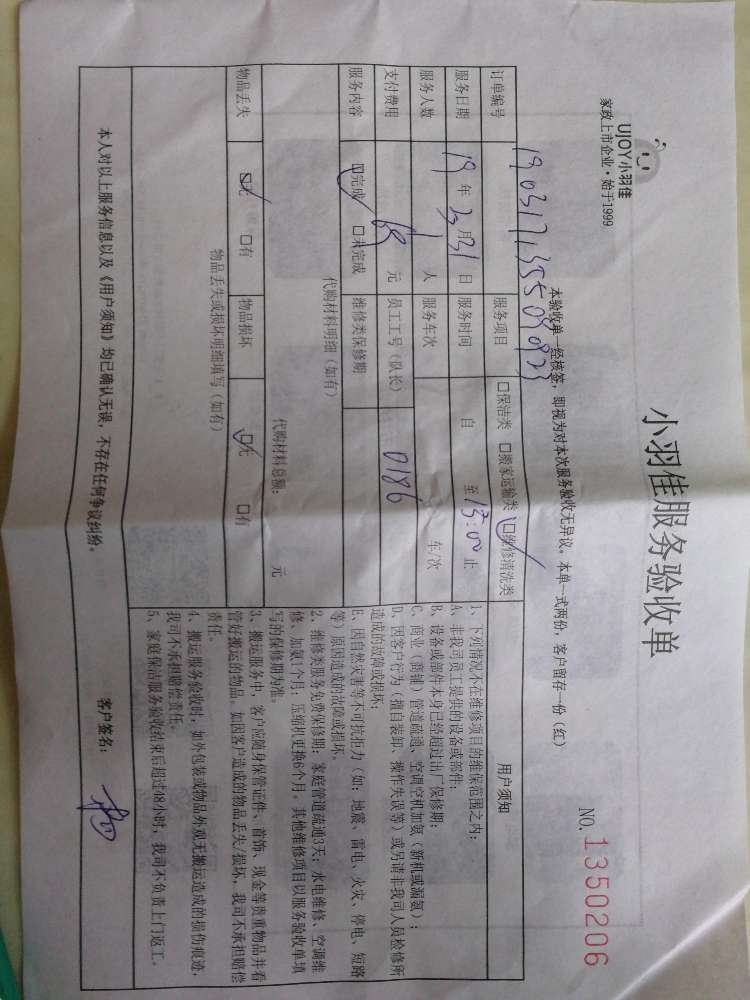 UJOY小羽佳
家政上市企业·始于1999
小羽佳服务验收单
NO.1350206
本验收单一经核签，即视为对本次服务验收无异议。本单一式两份，客户留存一份（红）
订单编号 服务项目 □保洁类 □搬家运输类 ☑维修清洗类
服务日期 19年 月31日 服务时间 自 至13:00止
服务人数 1人 服务车次 车/次
支付费用 68元 员工工号（队长） 0186
服务内容 ☑完成 □未完成 维修类保修期
代购材料明细（如有）
代购材料总额： 元
物品丢失 ☑无 □有 物品损坏 ☑无 □有
物品丢失或损坏明细填写（如有）
用户须知
1、下列情况不在维修项目的维保范围之内：
A、非我司员工提供的设备或部件；
B、设备或部件本身已经超过出厂保修期；
C、商业（商铺）管道疏通、空调空机加氨（新机或漏氨）；
D、因客户行为（擅自装卸、操作失误等）或另请非我司人员检修所
造成的故障或损坏；
E、因自然灾害等不可抗拒力（如：地震、雷电、火灾、停电、短路
等）原因造成的故障或损坏。
2、维修类服务免费保修期：家庭管道疏通3天；水电维修、空调维
修、加氨1个月；压缩机更换6个月。其他维修项目以服务验收单填
写的保修期为准。
3、搬运服务中，客户应随身保管证件、首饰、现金等贵重物品并看
管好搬运的物品。如因客户造成的物品丢失/损坏，我司不承担赔偿
责任。
4、搬运服务验收时，如外包装或物品外观无搬运造成的损伤痕迹，
我司不承担赔偿责任。
5、家庭保洁服务验收结束后超过48小时，我司不负责上门返工。
本人对以上服务信息以及《用户须知》均已确认无误，不存在任何争议纠纷。
客户签名：